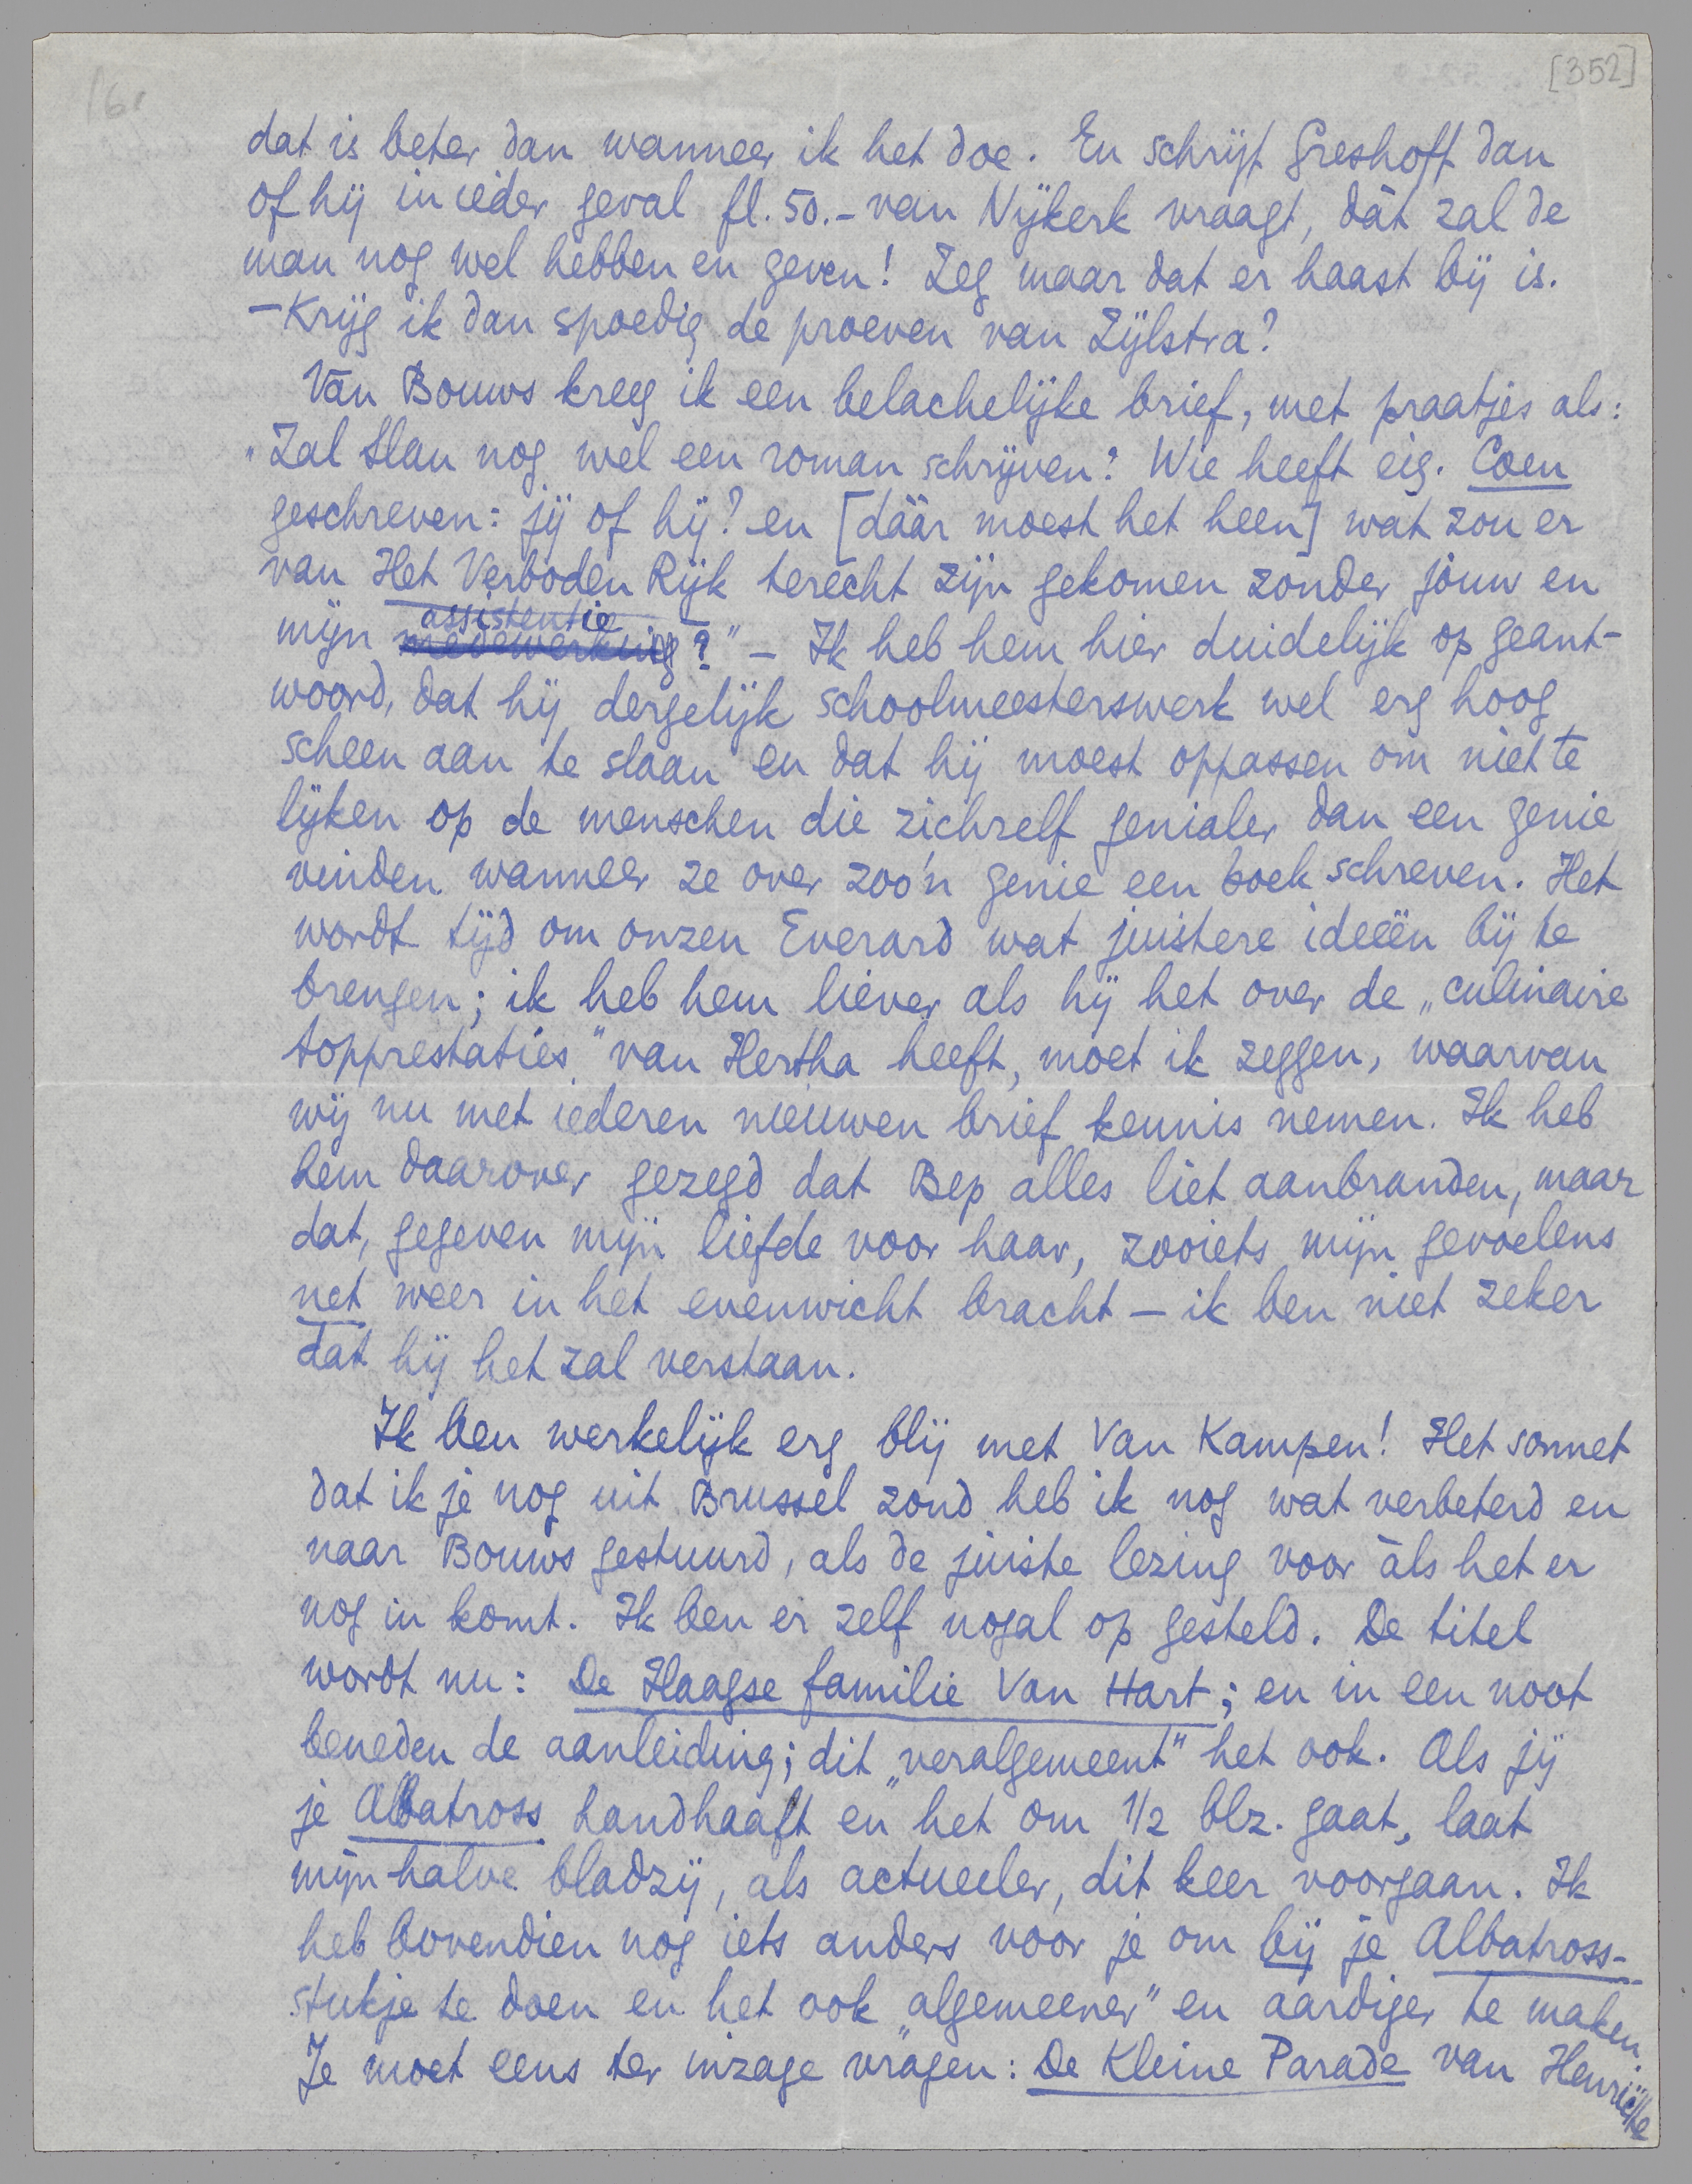 [352]
dat is beter dan wanneer ik het doe. En schrijf Greshoff dan
of hij in ieder geval fl. 50.- van Nijkerk vraagt, dàt zal de
man nog wel hebben en geven! Zeg maar dat er haast bij is.
- Krijg ik dan spoedig de proeven van Zijlstra?
Van Bouws kreeg ik een belachelijke brief, met praatjes als:
"Zal Slau nog wel een roman schrijven? Wie heeft eig. Coen
geschreven: jij of hij? en [dáár moest het heen] wat zou er
van Het Verboden Rijk terecht zijn gekomen zonder jouw en
assistentie
mijn medewerking?" - Ik heb hem hier duidelijk op geant-
woord, dat hij dergelijk schoolmeesterswerk wel erg hoog
scheen aan te slaan en dat hij moest oppassen om niet te
lijken op de menschen die zichzelf genialer dan een genie
vinden wanneer ze over zoo'n genie een boek schreven. Het
wordt tijd om onzen Everard wat juistere ideeën bij te
brengen; ik heb hem liever als hij het over de „culinaire
topprestaties" van Hertha heeft, moet ik zeggen, waarvan
wij nu met iederen nieuwen brief kennis nemen. Ik heb
hem daarover gezegd dat Bep alles liet aanbranden, maar
dat, gegeven mijn liefde voor haar, zooiets mijn gevoelens
net weer in het evenwicht bracht - ik ben niet zeker
dat hij het zal verstaan.
Ik ben werkelijk erg blij met Van Kampen! Het sonnet
dat ik je nog uit Brussel zond heb ik nog wat verbeterd en
naar Bouws gestuurd, als de juiste lezing voor àls het er
nog in komt. Ik ben er zelf nogal op gesteld. De titel
wordt nu: De Haagse familie Van Hart; en in een noot
beneden de aanleiding; dit „veralgemeent" het ook. Als jij
je Albatross handhaaft en het om 1/2 blz. gaat, laat
mijn halve bladzij, als actueeler, dit keer voorgaan. Ik
heb bovendien nog iets anders voor je om bij je Albatross-
stukje te doen en het ook „algemeener" en aardiger te maken.
Je moet eens ter inzage vragen: De Kleine Parade van Henriëtte